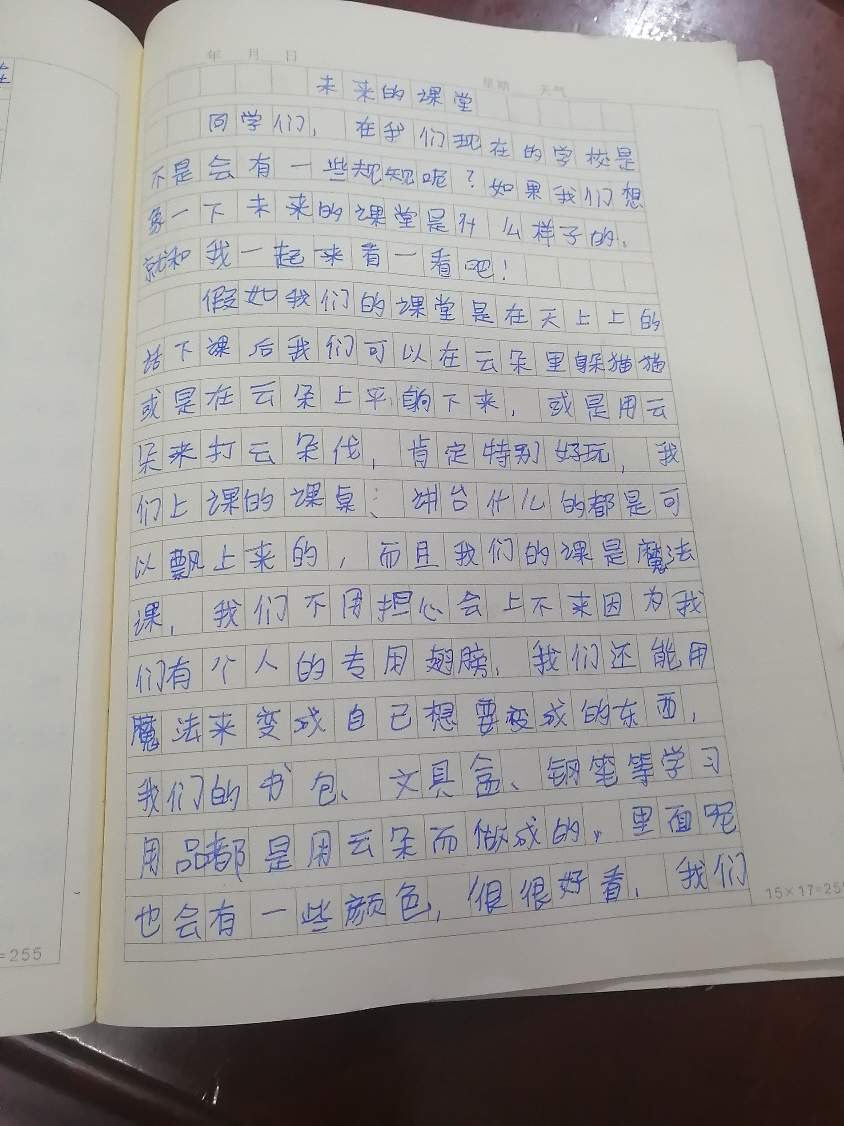 在
年 月 日
星期 天气
未来的课堂
同学们，在我们现在的学校是
不是会有一些规规呢？如果我们想
象一下未来的课堂是什么样子的，
就和我一起来看一看吧！
假如我们的课堂是在天上上的
话下课后我们可以在云朵里躲猫猫
或是在云朵上平躺下来，或是用云
朵来打云朵仗，肯定特别好玩，我
们上课的课桌、讲台什么的都是可
以飘上来的，而且我们的课是魔法
课，我们不用担心会上不来因为我
们有个人的专用翅膀，我们还能用
魔法来变成自己想要变成的东西，
我们的书包、文具盒、钢笔等学习
用品都是用云朵而做成的，里面呢
也会有一些颜色，很很好看，我们
15×17=255
=255